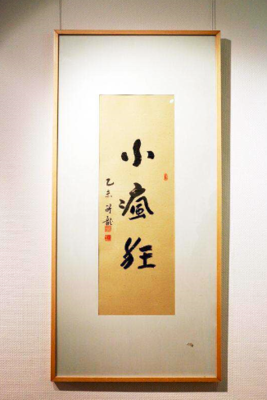 小瘋狂
乙未